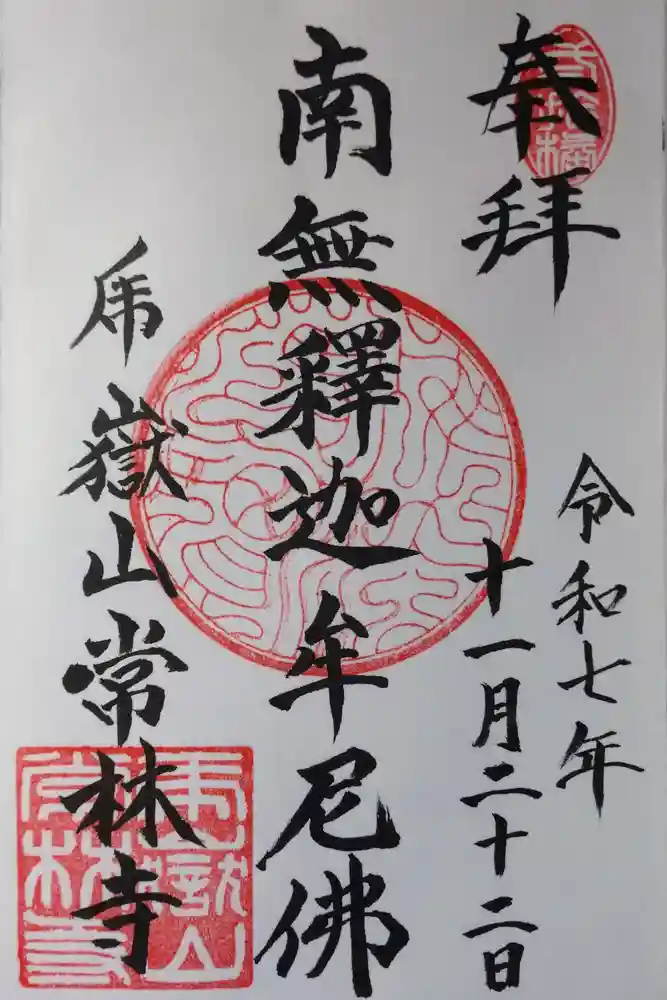 奉拝
令和七年
十一月二十二日
南無釋迦牟尼佛
乕嶽山常林寺
乕嶽山
常林寺